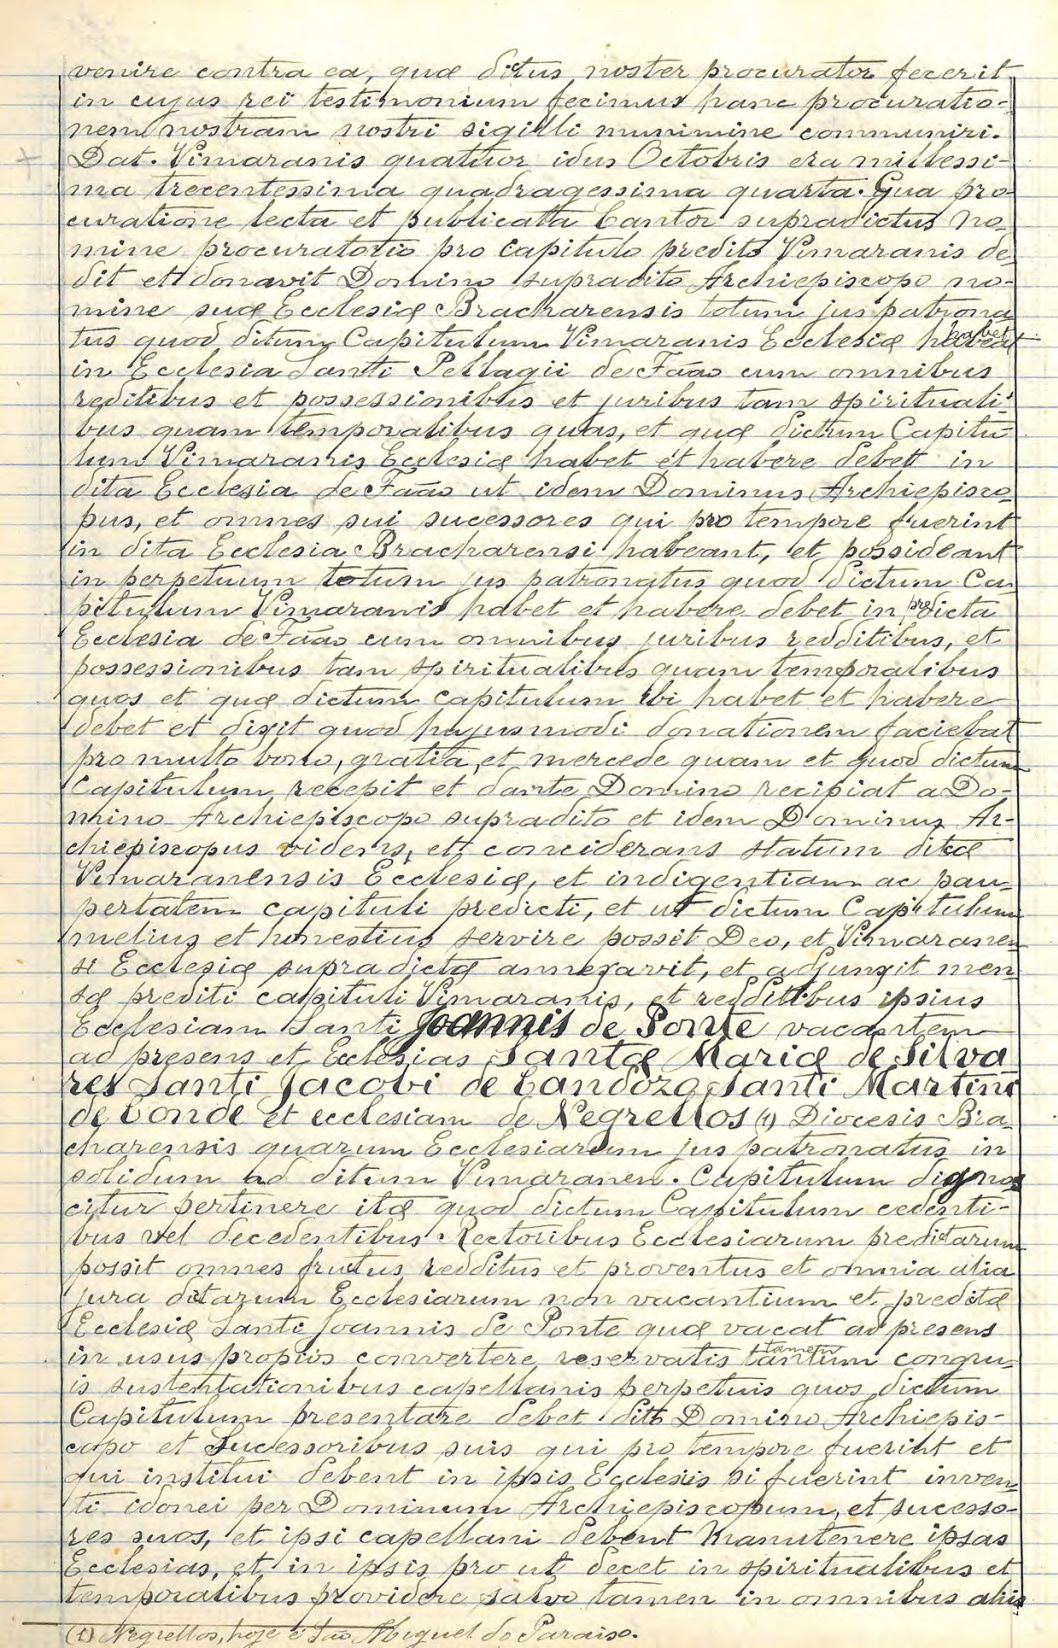 venire contra ea, quæ dictus noster procurator fecerit
in cujus rei testimonium fecimus hanc procuratio-
nem nostram nostri sigilli munimine communiri.
Dat. Vimaranis quatuor idus Octobris era millessi-
ma trecentessima quadragessima quarta. Qua pro-
curatione lecta et publicatta Cantor supradictus no-
mine procuratorio pro capitulo predito Vimaranis de-
dit et donavit Domino supradito Archiepiscopo no-
mine suæ Ecclesiæ Bracharensis totum jus patrona
tus quod ditum Capitulum Vimaranis Ecclesiæ habet
in Ecclesia Santi Pellagii de Fáão cum omnibus
reditibus et possessionibus et juribus tam spirituali-
bus quam temporalibus quas, et quæ dictum Capitu-
lum Vimaranis Ecclesiæ habet et habere debet in
dita Ecclesia de Fáão ut idem Dominus Archiepisco-
pus, et omnes sui sucessores qui pro tempore fuerint
in dita Ecclesia Bracharensi habeant, et possideant
in perpetuum totum jus patronatus quod dictum Ca-
pitulum Vimaranis habet et habere debet in predicta
Ecclesia de Fáão cum omnibus juribus redditibus, et
possessionibus tam spiritualibus quam temporalibus
quos et quæ dictum capitulum ibi habet et habere
debet et dixit quod hujusmodi donationem faciebat
pro multo bono, gratia, et mercede quam et quod dictum
Capitulum recepit et dante Domino recipiat a Do-
mino Archiepiscopo supradito et idem Dominus Ar-
chiepiscopus videns, et conciderans statum ditæ
Vimaranensis Ecclesiæ, et indigentiam ac pau-
pertatem capituli predicti, et ut dictum Capitulum
melius et honestius servire possit Deo, et Vimaranen-
si Ecclesiæ supradictæ annexavit, et adjunxit men-
sæ prediti capituli Vimaranis, et redditibus ipsius
Ecclesiam Santi Joannis de Ponte vacantem
ad presens et Ecclesias Santæ Mariæ de Silva
res Santi Jacobi de Candozo Santi Martini
de Conde et ecclesiam de Negrellos (1) Diocesis Bra-
charensis quarum Ecclesiarum jus patronatus in
solidum ad ditum Vimaranen. Capitulum dignos
citur pertinere itæ quod dictum Capitulum cedenti-
bus vel decedentibus Rectoribus Ecclesiarum predictarum
possit omnes fructus redditus et proventus et omnia alia
jura ditarum Ecclesiarum non vacantium et preditæ
Ecclesiæ Santi Joannis de Ponte quæ vacat ad presens
in usus proprios convertere reservatis tamen congru-
is sustentationibus capellanis perpetuis quos dictum
Capitulum presentare debet dito Domino Archiepis-
copo et Sucessoribus suis qui pro tempore fuerint et
qui institui debent in ipsis Ecclesiis si fuerint inven-
ti idonei per Dominum Archiepiscopum, et sucesso-
res suos, et ipsi capellani debent manutenere ipsas
Ecclesias, et in ipsis pro ut decet in spiritualibus et
temporalibus providere salvo tamen in omnibus aliis
(1) Negrellos, hoje é São Miguel do Paraiso.